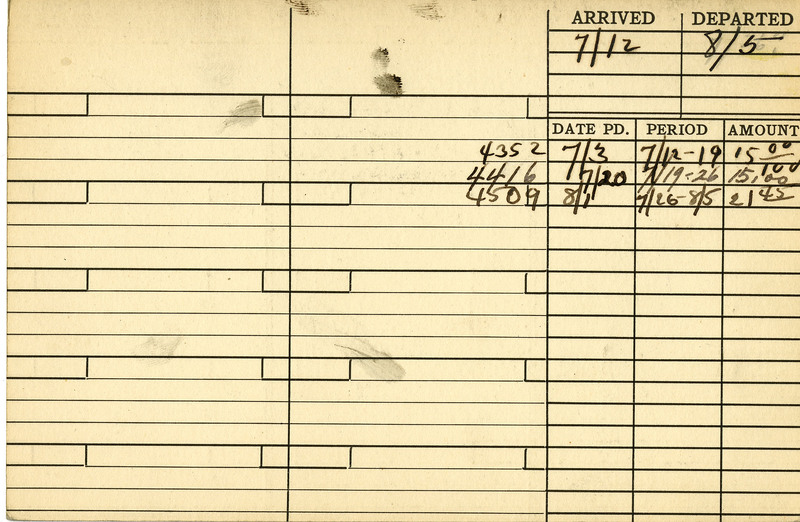 ARRIVED DEPARTED
7/12 8/5
DATE PD. PERIOD AMOUNT
4352 7/3 7/12-19 15 00
4416 7/20 7/19-26 15,00
4509 8/1 7/26-8/5 21 45